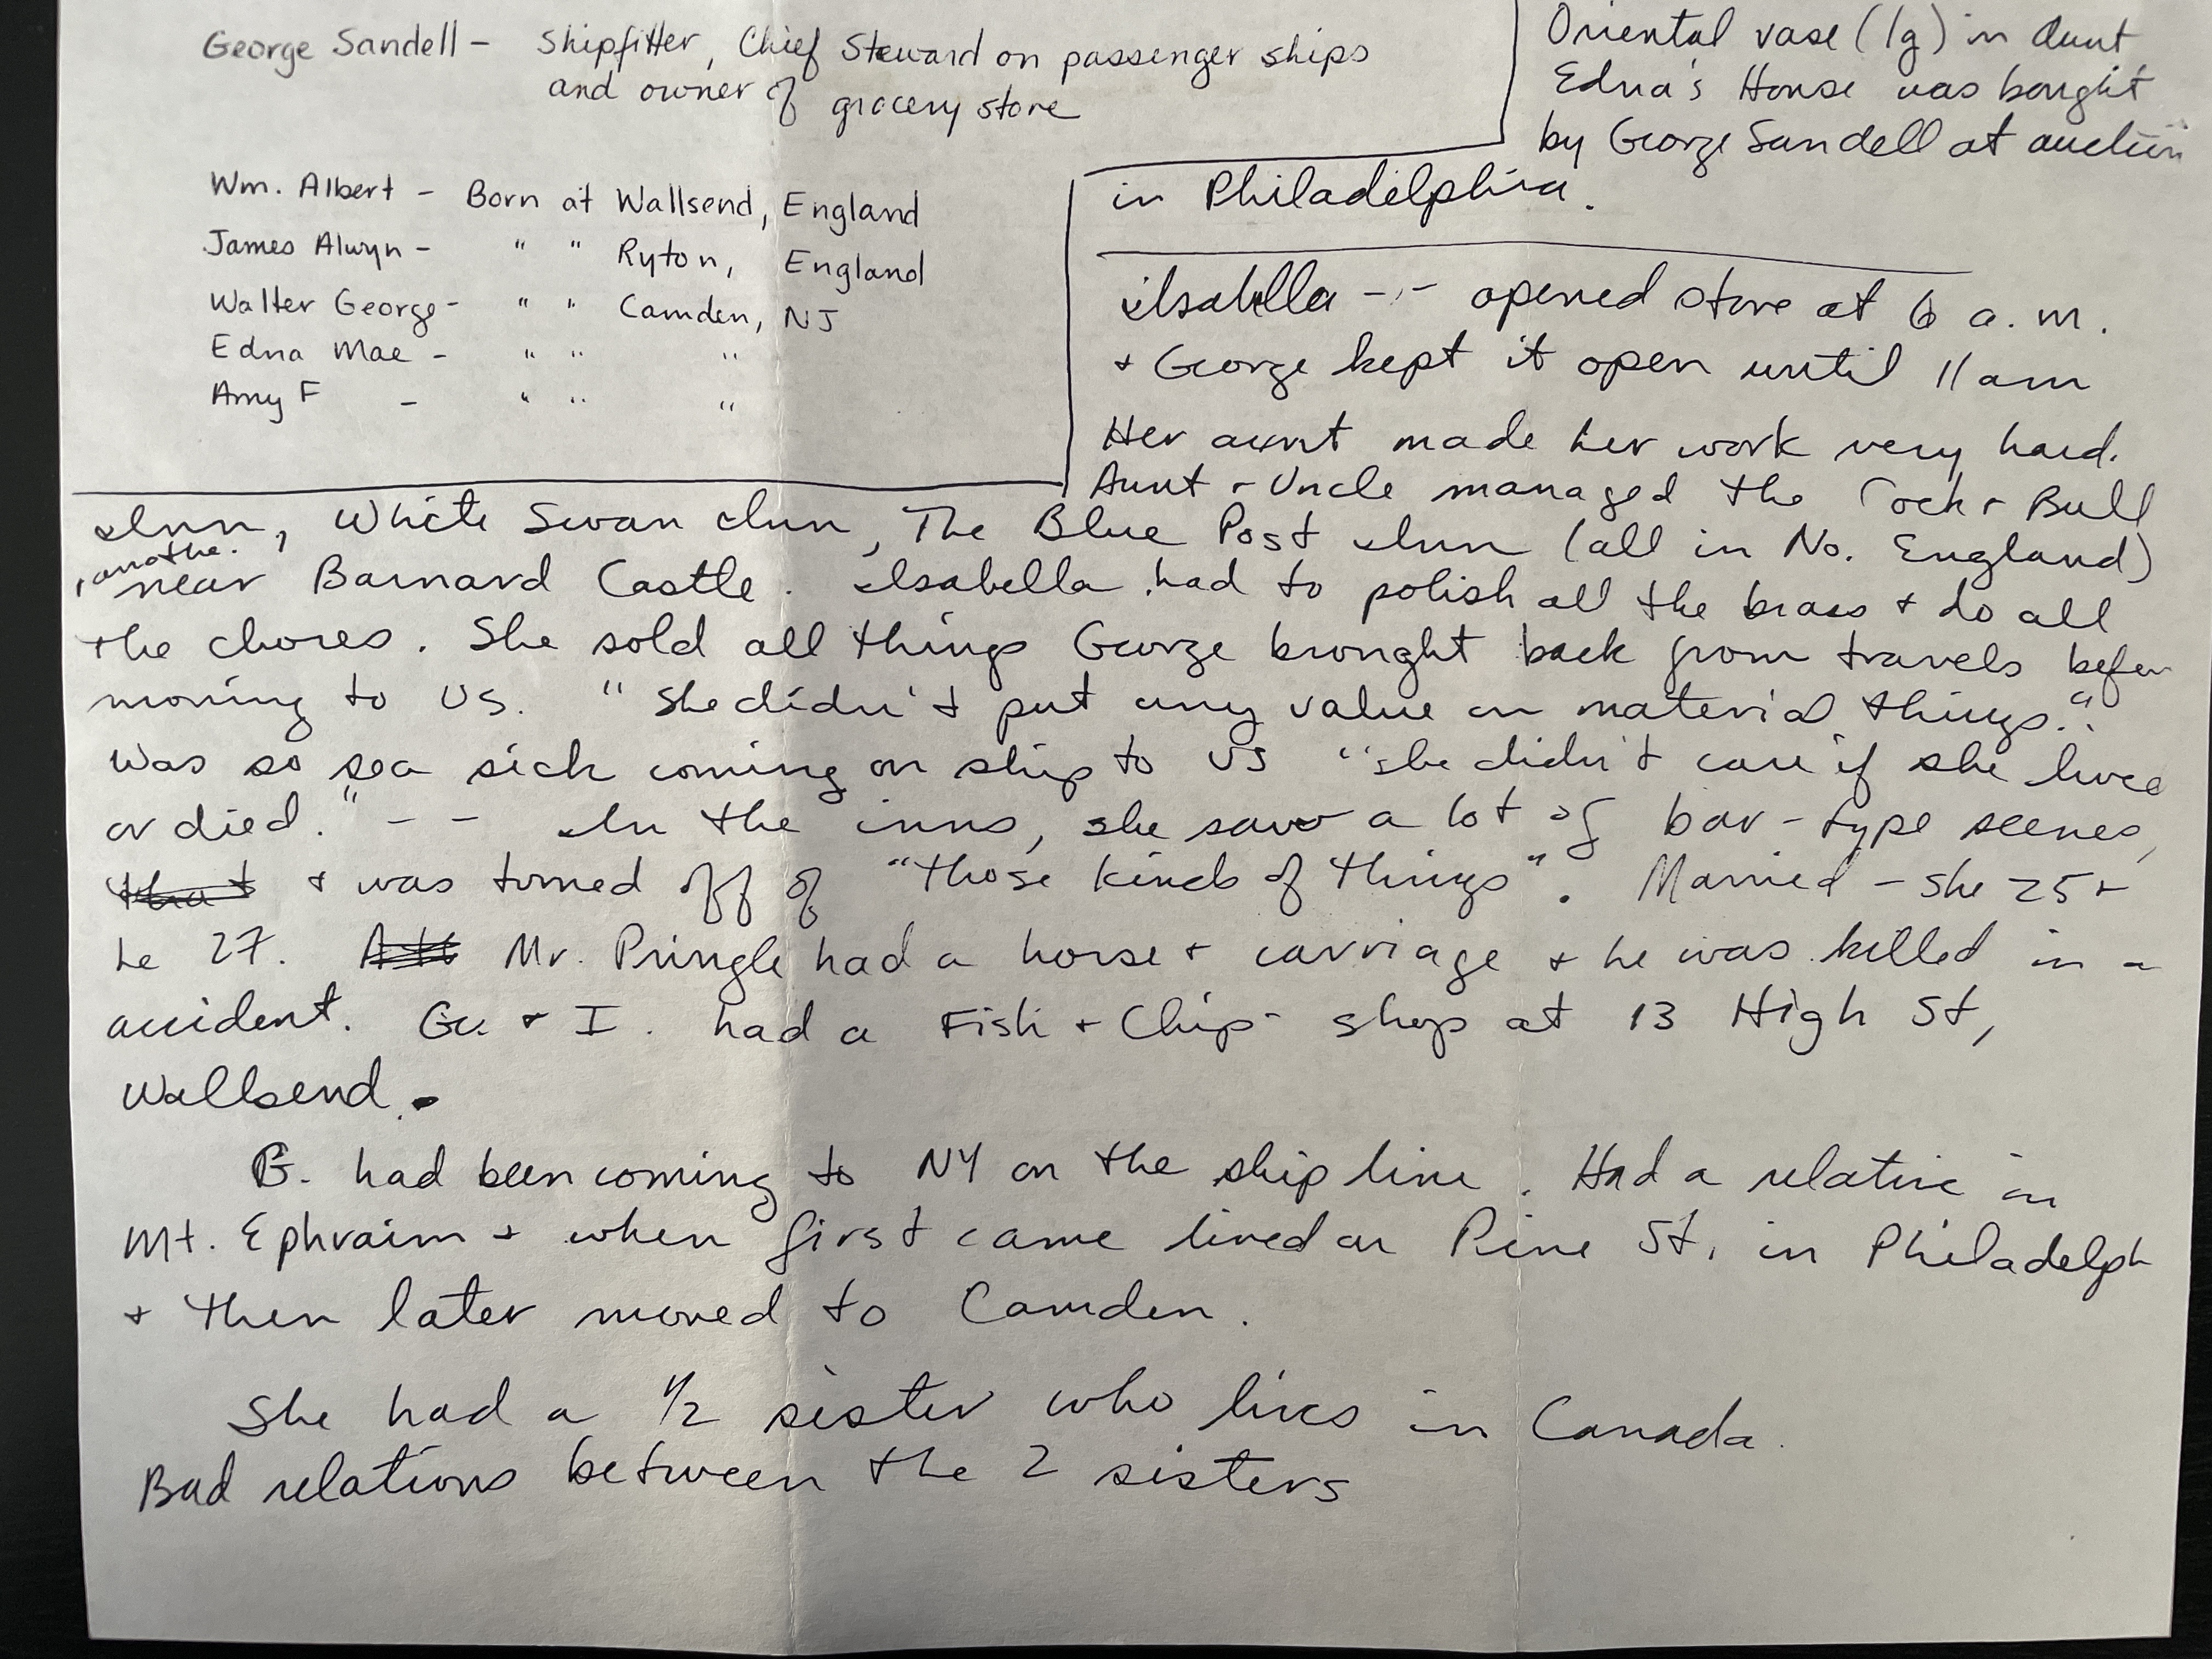 George Sandell - Shipfitter, Chief Steward on passenger ships
and owner of grocery store
Wm. Albert - Born at Wallsend, England
James Alwyn - " " Ryton, England
Walter George - " " Camden, NJ
Edna Mae - " " "
Amy F - " " "
Oriental vase (lg) in Aunt
Edna's House was bought
by George Sandell at auction
in Philadelphia.
Isabella -- opened store at 6 a.m.
+ George kept it open until 11 am
Her aunt made her work very hard.
Aunt + Uncle managed the Cock + Bull
Inn, White Swan Inn, The Blue Post Inn (all in No. England)
near Barnard Castle. Isabella had to polish all the brass + do all
the chores. She sold all things George brought back from travels before
moving to US. "She didn't put any value on material things."
was so sea sick coming on ship to US "she didn't care if she lived
or died." -- In the inns, she saw a lot of bar-type scenes,
that + was turned off of "those kinds of things". Married - she 25 +
he 27. Mr. Pringle had a horse + carriage + he was killed in a
accident. Ge + I. had a Fish + Chips shop at 13 High St,
Wallsend.
B. had been coming to NY on the ship line. Had a relative in
Mt. Ephraim + when first came lived on Pine St, in Philadelph
+ then later moved to Camden.
She had a 1/2 sister who lives in Canada.
Bad relations between the 2 sisters